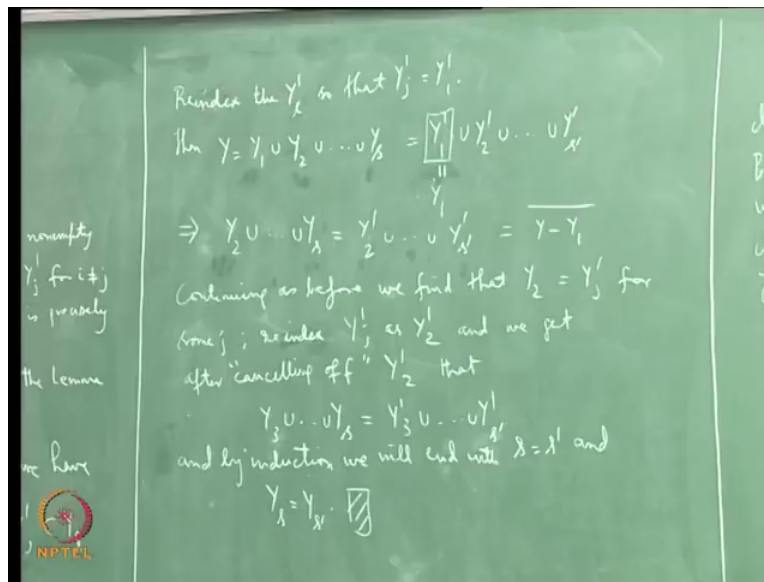 nonempty
Y'_j for i≠j
is precisely
the Lemma
we have
Reindex the Y'_i so that Y'_j = Y'_1.
Then Y = Y_1 ∪ Y_2 ∪ ... ∪ Y_s = Y'_1 ∪ Y'_2 ∪ ... ∪ Y'_s'
=
Y_1
⇒ Y_2 ∪ ... ∪ Y_s = Y'_2 ∪ ... ∪ Y'_s' = \overline{Y - Y_1}
Continuing as before we find that Y_2 = Y'_j for
some j ; reindex Y'_j as Y'_2 and we get
after "cancelling off" Y'_2 that
Y_3 ∪ .. ∪ Y_s = Y'_3 ∪ ... ∪ Y'_s'
and by induction we will end with s = s' and
Y_s = Y_s' .
NPTEL